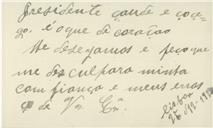 Presidente saude e soce
go, é o que de coração
lhe desejamos e peço que
me desculpara minha
com fiança e meus erros
de V. Ex.
Lisboa